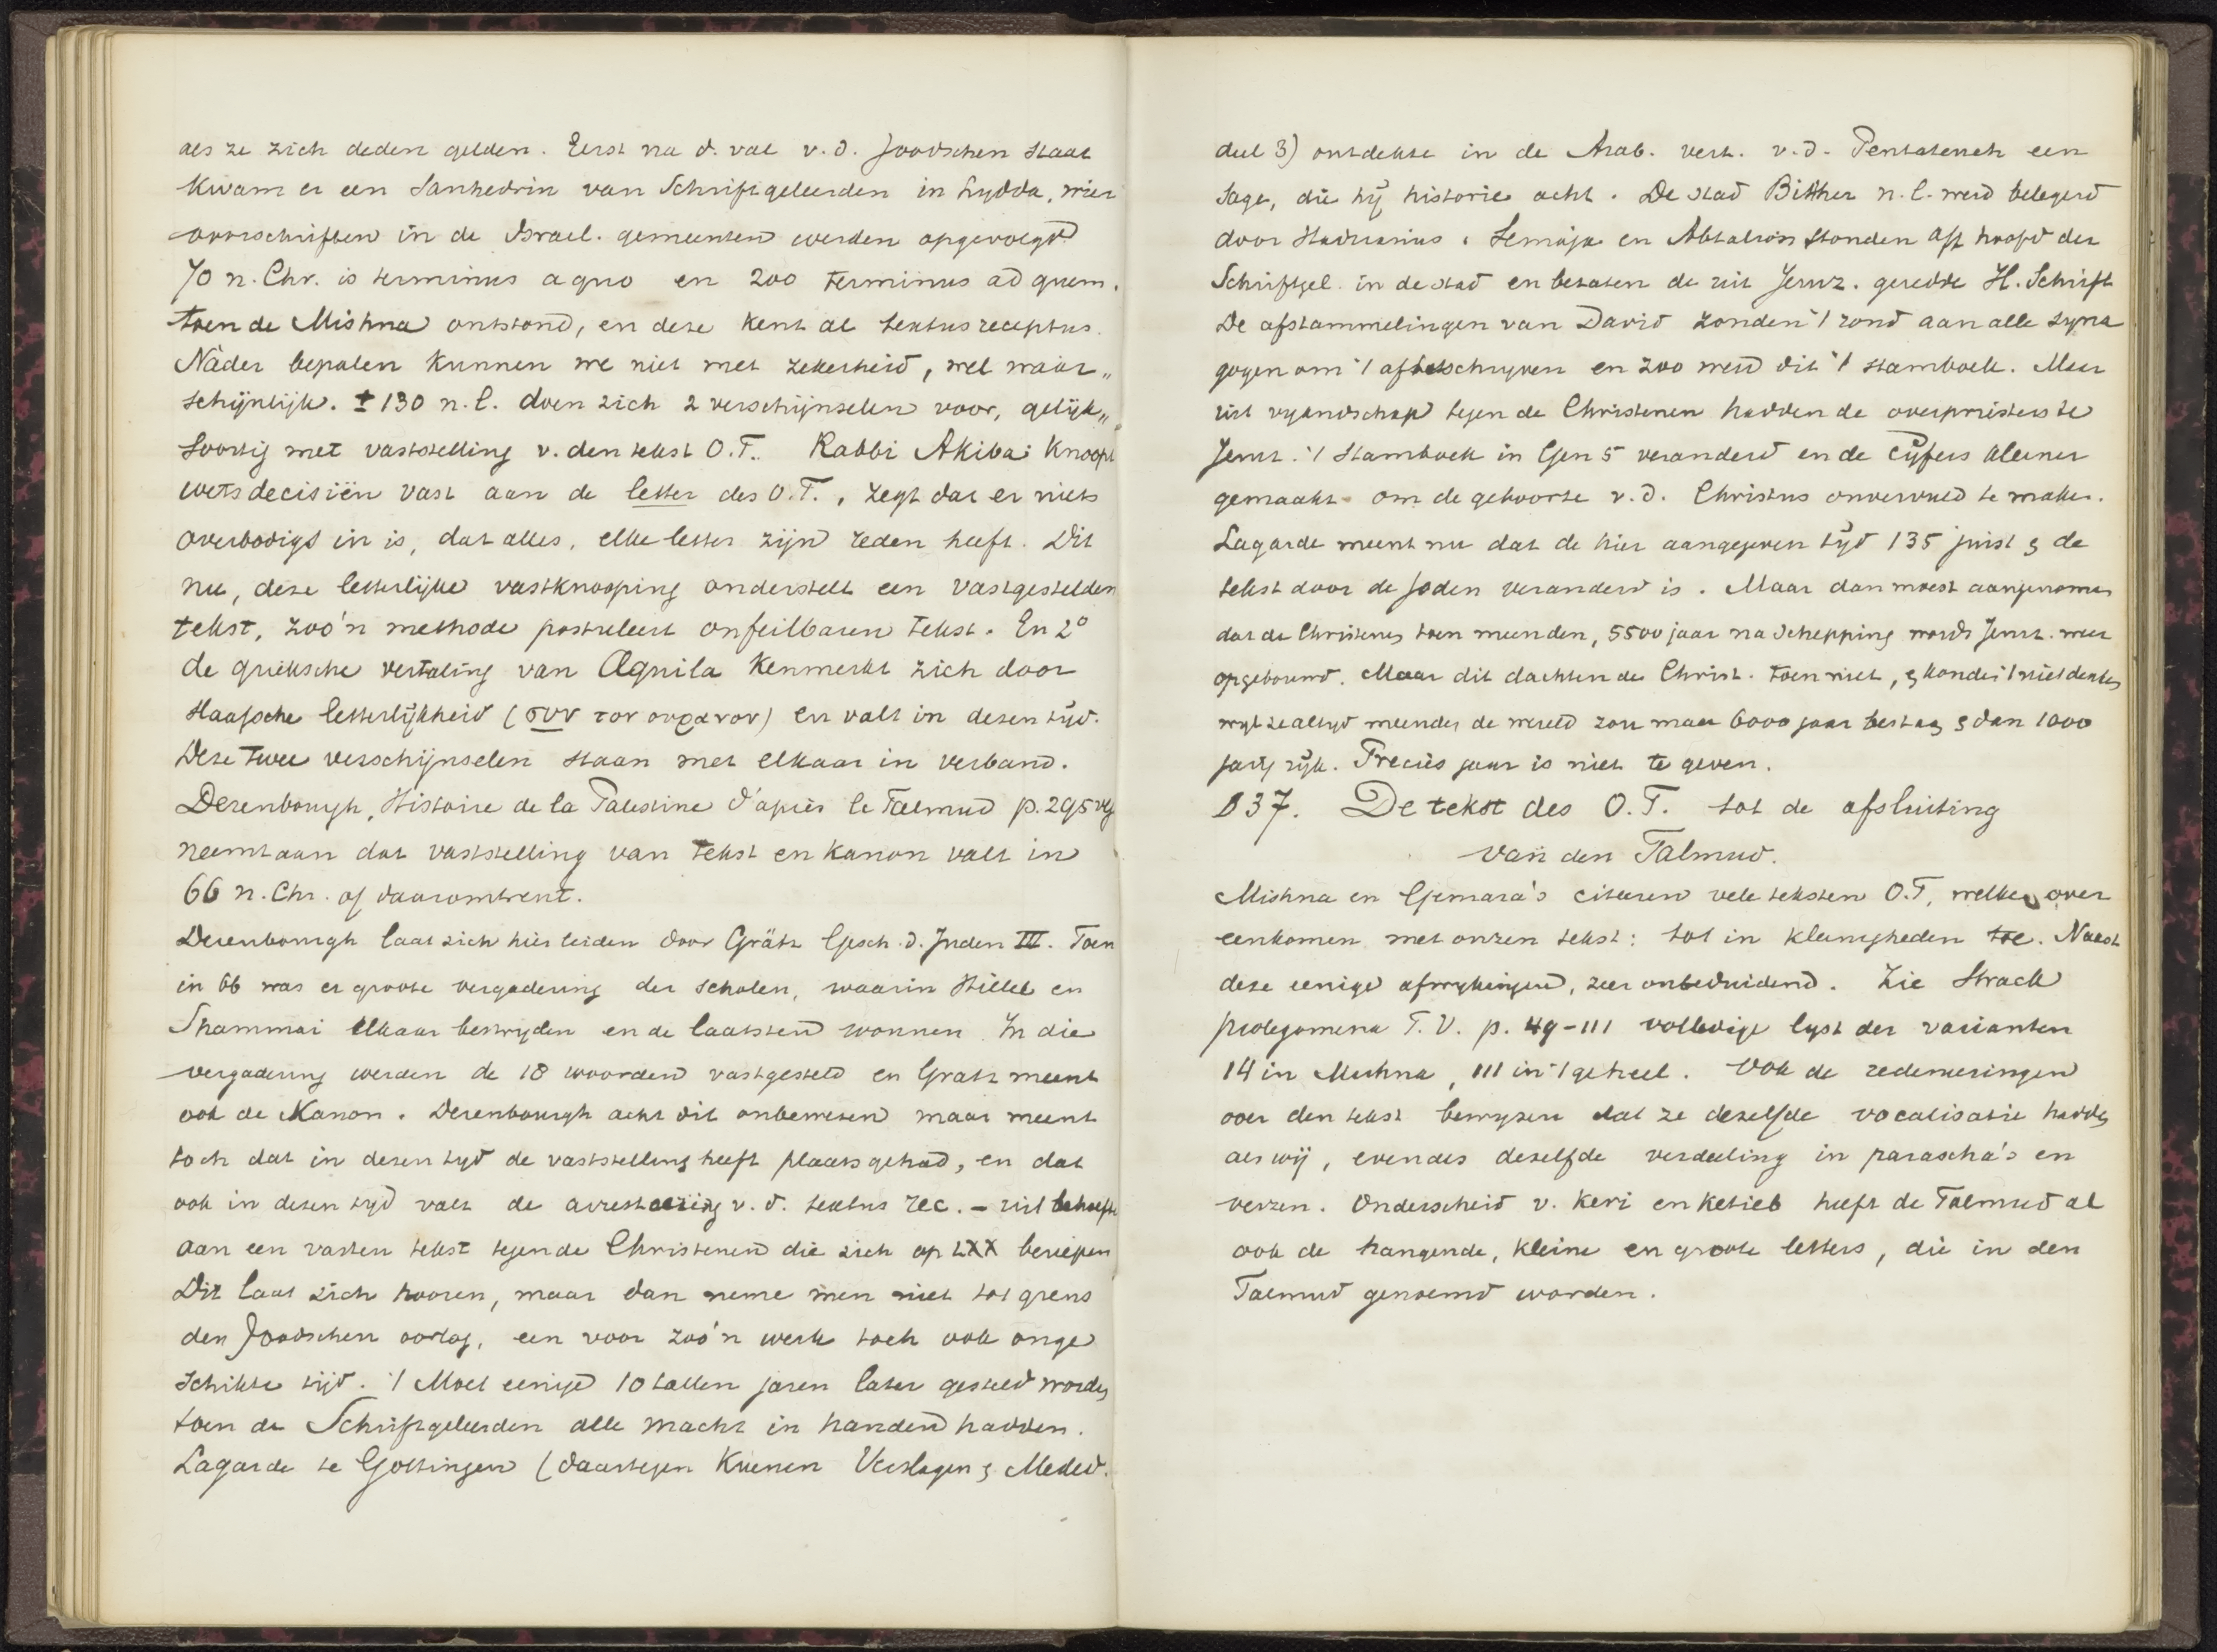 als ze zich deden gelden. Eerst na d. val v.d. Joodschen staat
kwam er een Sanhedrin van Schriftgeleerden in Lydda, wier
voorschriften in de Israel. gemeenten werden opgevolgd
70 n. Chr. is terminus a quo en 200 terminus ad quem.
toen de Mishna ontstond, en deze kent al textus receptus.
Nader bepalen kunnen we niet met zekerheid, wel waar„
schijnlijk. ± 130 n. C. doen zich 2 verschijnselen voor, gelijk„
soortig met vaststelling v. den tekst O.T. Rabbi Akiba: knoopt
wetsdecisiën vast aan de letter des O.T., zegt dat er niets
overbodigs in is, dat alles, elke letter zijn reden heeft. Dit
nu, deze letterlijke vastknooping onderstelt een vastgestelden
tekst, zoo'n methode postuleert onfeilbaren tekst. En 2°
de grieksche vertaling van Aquila kenmerkt zich door
slaafsche letterlijkheid (συν τον ουρανον) en valt in dezen tijd.
Deze twee verschijnselen staan met elkaar in verband.
Derenbourgh, Histoire de la Palestine d'après le Talmud p. 295 vlg
neemt aan dat vaststelling van tekst en kanon valt in
66 n. Chr. of daaromtrent.
Derenbourgh laat zich hier leiden door Grätz Gesch. d. Juden III. Toen
in 66 was er groote vergadering der scholen, waarin Hillel en
Shammai elkaar bestryden en de laatsten wonnen. In die
vergadering werden de 18 woorden vastgesteld en Gratz meent
ook de Kanon. Derenbourgh acht dit onbewezen maar meent
toch dat in dezen tyd de vaststelling heeft plaats gehad, en dat
ook in dezen tyd valt de v. d. textus rec. – uit behoefte
aan een vasten tekst tegen de Christenen die zich op LXX beriepen
Dit laat zich hooren, maar dan neme men niet tot grens
den Joodschen oorlog, een voor zoo'n werk toch ook onge
schikte tijd. 't Moet eenige 10 tallen jaren later gesteld worden
toen de Schriftgeleerden alle macht in handen hadden.
Lagarde te Gottingen (daartegen Kuenen Verslagen & Meded.
deel 3) ontdekte in de Arab. vert. v.d. Pentateuch een
sage, die hij historie acht. De stad Bitther n.l. werd belegerd
door Hadrianus. Semaja en Abtalion stonden aan hoofd der
Schriftgel. in de stad en bezaten de uit Jeruz. geredde H. Schrift
De afstammelingen van David zonden 't rond aan alle syna
gogen om 't af te schryven en zoo werd dit 't stamboek. Maar
uit vyandschap tegen de Christenen hadden de overpriesters te
Jeruz. 't stamboek in Gen 5 veranderd en de cijfers kleiner
gemaakt om de geboorte v. d. Christus onvervuld te maken.
Lagarde meent nu dat de hier aangegeven tijd 135 juist & de
tekst door de Joden veranderd is. Maar dan moest aangenomen
dat de Christenen toen meenden, 5500 jaar na schepping wordt Jeruz. weer
opgebouwd. Maar dit dachten de Christ. toen niet, & konden 't niet denken
wyl ze altyd meenden de wereld zou maar 6000 jaar bestaan & dan 1000
jarig rijk. Precies jaar is niet te geven.
§37. De tekst des O.T. tot de afsluiting
van den Talmud.
Mishna en Gemara's citeren vele teksten O.T, welke over
eenkomen met onzen tekst: tot in kleinigheden toe. Naast
deze eenige afwykingen, zeer onbeduidend. Zie Strack
prolegomena T. V. p. 49–111 volledige lyst der varianten
14 in Mishna, 111 in 't geheel. Ook de redeneeringen
over den tekst bewyzen dat ze dezelfde vocalisatie hadden
als wij, evenals dezelfde verdeeling in parascha's en
verzen. Onderscheid v. Keri en Ketieb heeft de Talmud al
ook de hangende, kleine en groote letters, die in den
Talmud genoemd worden.